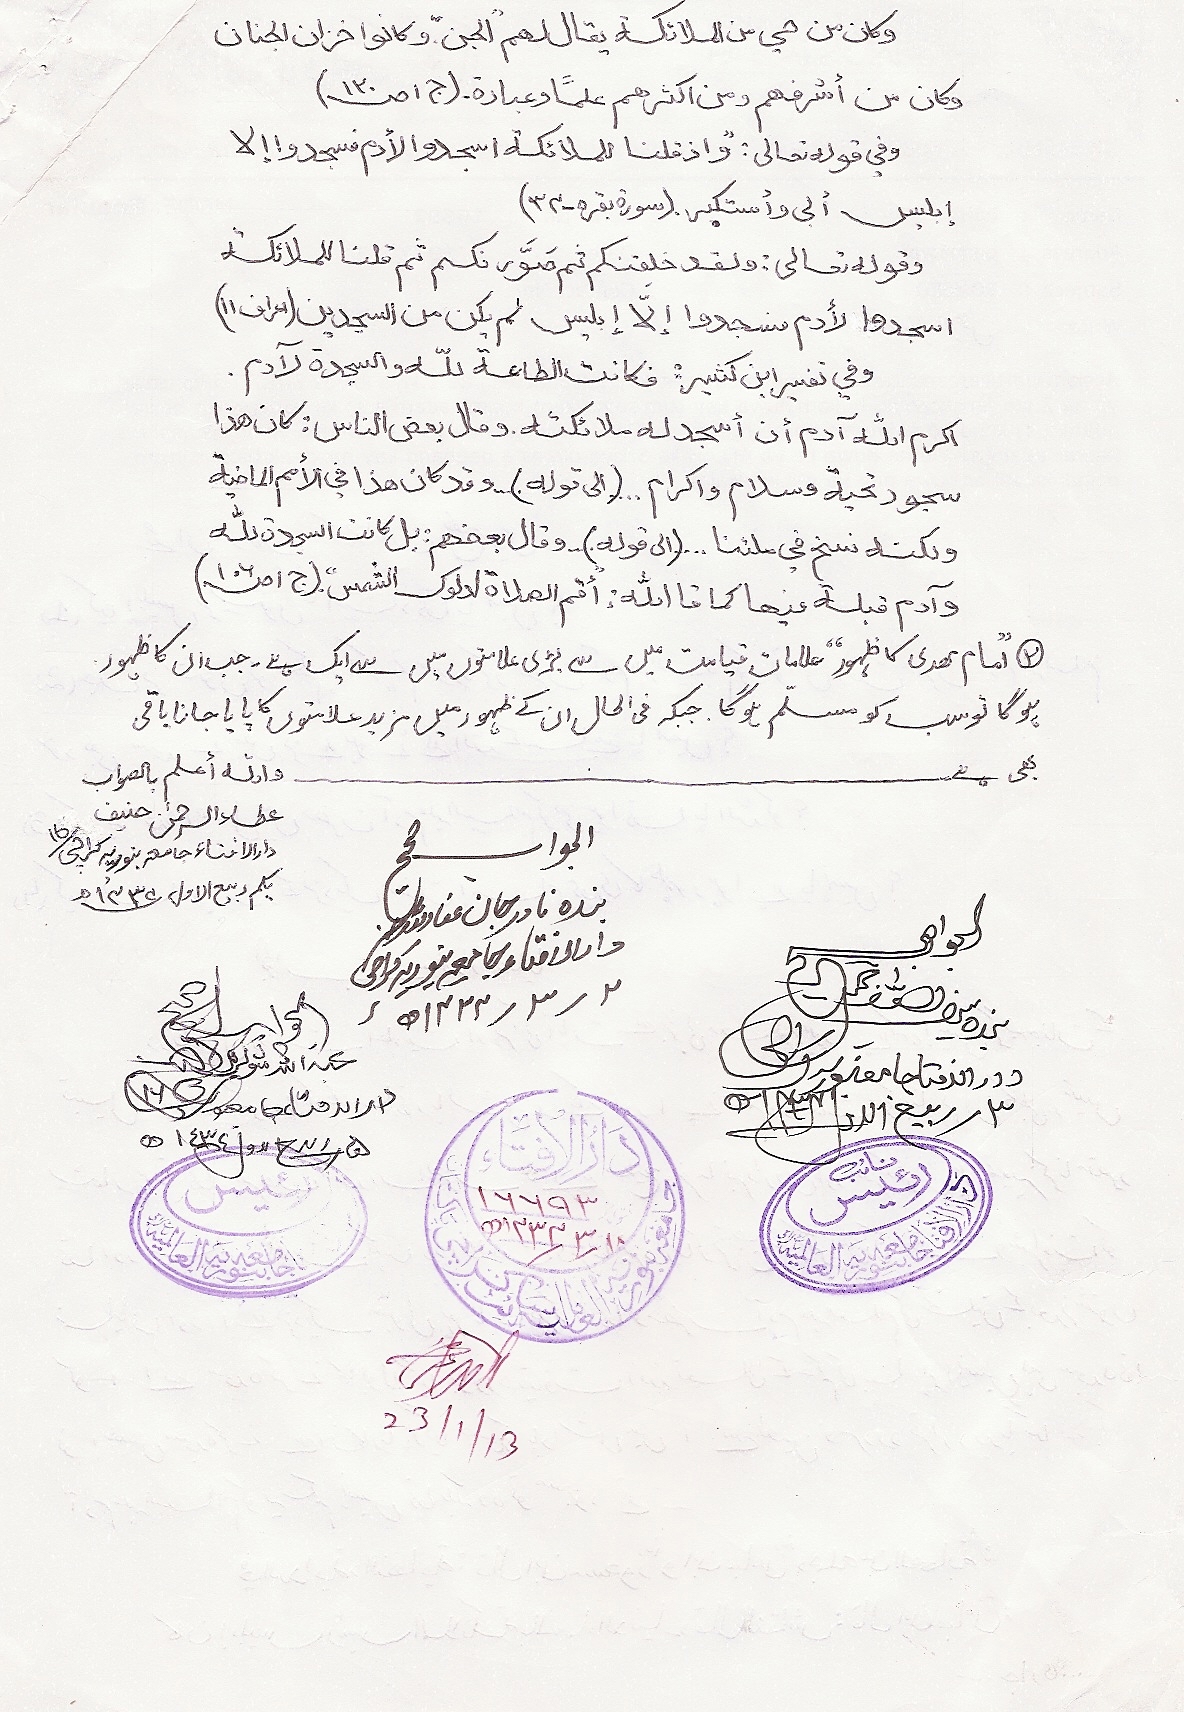 وكان من حي من الملائكة يقال لهم "الجن" وكانوا خزان الجنان
وكان من أشرفهم ومن اكثرهم علمًا وعبادة. (ج ١ ص ١٣٠)
وفي قوله تعالى: "واذ قلنا للملائكة اسجدوا لأدم فسجدوا إلا
إبليس أبى وأستكبر. (سورة بقره ـ ٣٤)
وقوله تعالى: ولقد خلقنكم ثم صَوَّرنكم ثم قلنا للملائكة
اسجدوا لأدم فسجدوا إلّا إبليس لم يكن من السجدين (اعراف ١١)
وفي تفسير ابن كثير: فكانت الطاعة للّه والسجدة لآدم.
اكرم اللّه آدم أن أسجد له ملائكته. وقال بعض الناس: كان هذا
سجود تحية وسلام واكرام ... (الى قوله) .. وقد كان هذا في الأمم الماضية
ولكنه نسخ في ملتنا ... (الى قوله) .. وقال بعضهم: بل كانت السجدة للّه
وآدم قبلة فيها كما قال اللّه: "أقم الصلاة لدلوك الشمس". (ج ١ ص ١٠٦)
② "امام مہدی کا ظہور" علامات قیامت میں سے بڑی علامتوں میں سے ایک ہے۔ جب ان کا ظہور
ہوگا تو سب کو مسلّم ہوگا۔ جبکہ فی الحال ان کے ظہور میں مزید علامتوں کا پایا جانا باقی
بھی ہے
واللہ أعلم بالصواب
عطاء الرحمٰن حنیف
دارالافتاء جامعہ بنوریہ کراچی ١٦
یکم ربیع الاول ١٤٣٤ھ
الجواب صحیح
بندہ نادر جان عفا اللہ عنہ
دارالافتاء جامعہ بنوریہ کراچی
٢ ر ٣ ر ١٤٣٤ھ
الجواب صحیح
بندہ
دارالافتاء جامعہ بنوریہ
٣ ر ربیع الاول ١٤٣٤ھ
الجواب صحیح
عبد اللہ شوکت
دارالافتاء جامعہ بنوریہ
ربیع الاول ١٤٣٤ھ
رئیس
جامعہ بنوریہ العالمیہ
دار الافتاء
١٦٦٩٣
١٨/٣/١٤٣٤ھ
جامعہ بنوریہ العالمیہ سائٹ کراچی
نائب
رئیس
دارالافتاء جامعہ بنوریہ العالمیہ
23/1/13